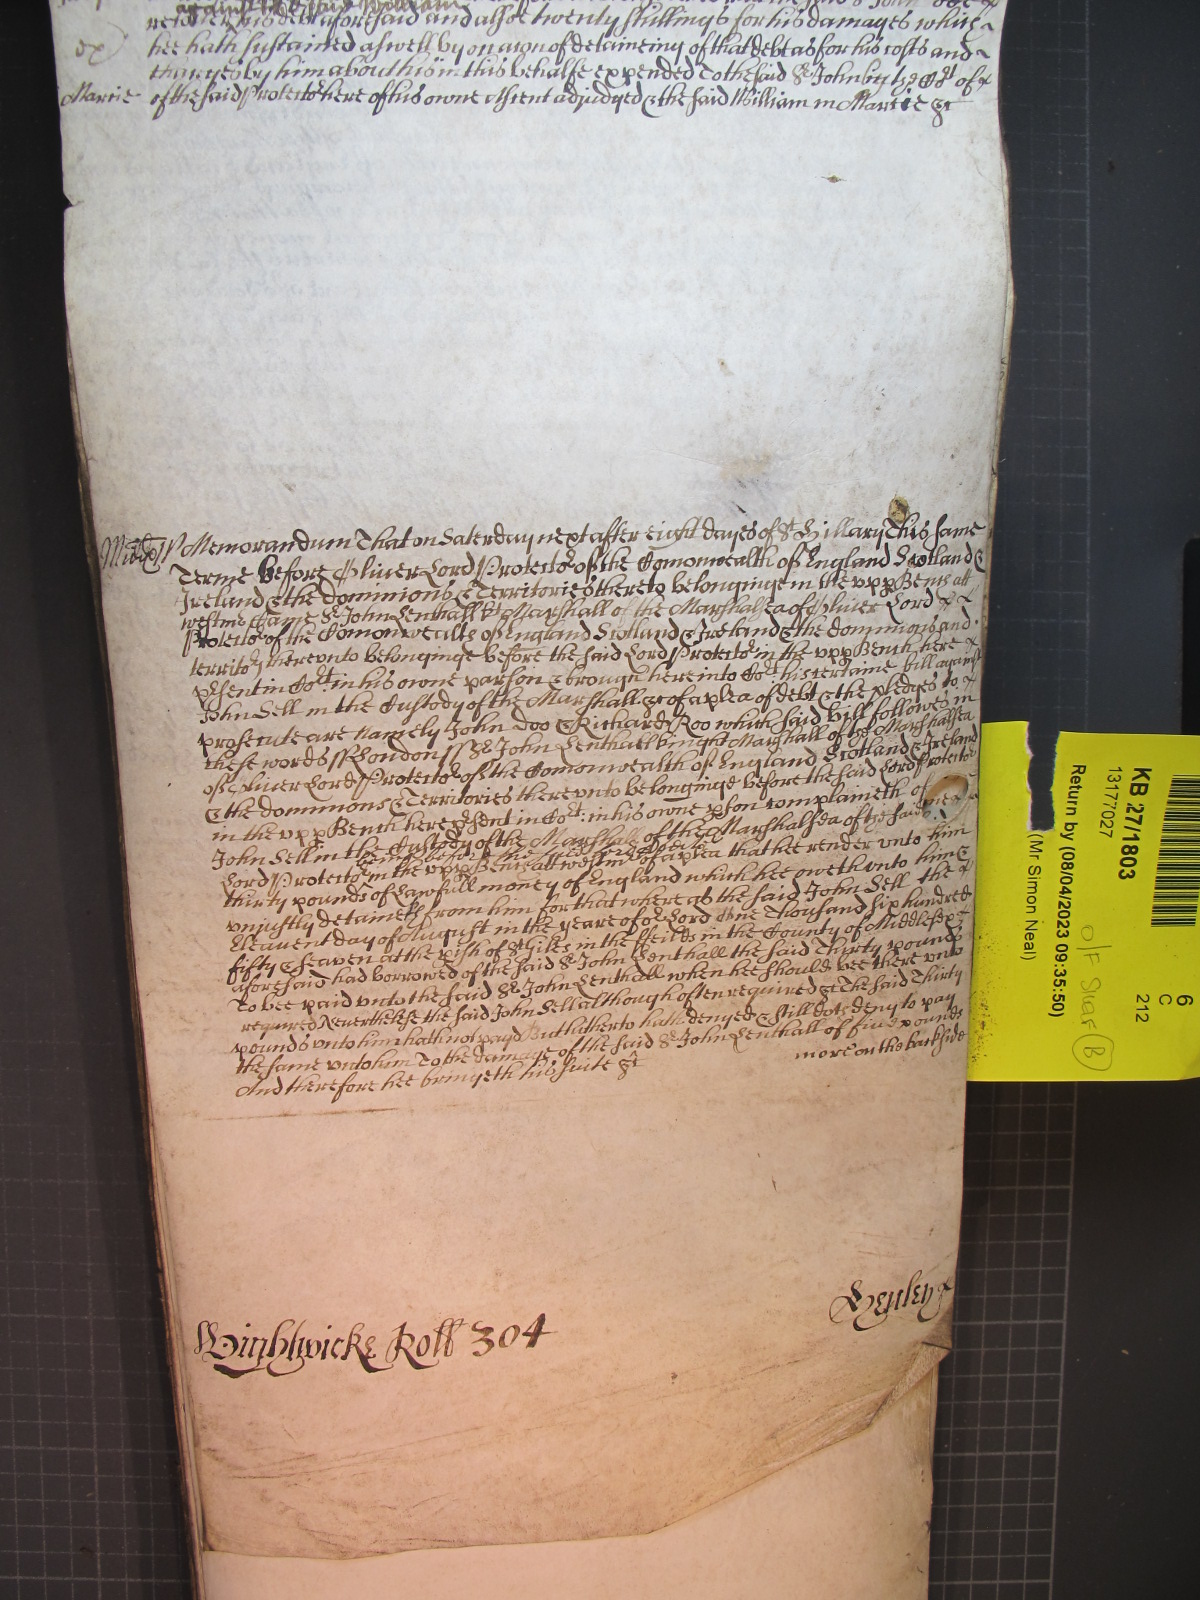 against the said William
his debt aforesaid and alsoe twenty shillings for his damages which
hee hath sustained aswell by occasion of detaineing of that debt as for his costs and
ex)
charges by him about his suite in this behalfe expended To the said Sr John by the Cort of
Marcie of the said Protector here of his owne assent adjudged & the said William in Marcie &c
Midds // Memorandum That on Saterday next after eight dayes of St Hillary This same
Terme before Oliver Lord Protector of the Comonwealth of England Scotland &
Ireland & the dominions & Territories thereto belonginge in the upp Bench att
westmr Came Sr John Lenthall kt Marshall of the Marshalsea of Oliver Lord
Protector of the Comonwealth of England Scotland & Ireland & the dominions and
territor thereunto belonginge before the said Lord Protector in the upp Bench here
psent in Cort in his owne parson & brough here into Cort his certaine bill against
John Sell in the Custody of the Marshall &c of a plea of debt & the pledges to
prosecute are namely John Doo & Richard Roo which said bill followes in
these words // London // Sr John Lenthall knight Marshall of the Marshallsea
of Oliver Lord Protector of the Comonwealth of England Scotland & Ireland
& the dominions & Territories thereunto belonginge before the said Lord Protector
in the upp Bench here psent in Cort in his owne pson complaineth of
John Sell in the Custody of the Marshall of the Marshalsea of the said
Lord Protector in the upp Bench att westmr of a plea that hee render unto him
thirty pounds of Lawfull money of England which hee oweth unto him &
unjustly detaineth from him for that whereas the said John Sell the
Eleavent day of August in the yeare of or Lord One Thousand six hundred
fifty & seaven at the pish of St Giles in the ffeilds in the County of Middlesex
aforesaid had borrowed of the said Sr John Lenthall the said Thirty pounds
To bee paid unto the said Sr John Lenthall when hee should bee there unto
required Neverthelesse the said John Sell although often required &c The said Thirty
pounds unto him hath not payd But hitherto hath denyed & still doth deny to pay
the same unto him To the damage of the said Sr John Lenthall of five pounds
And therefore hee bringeth his suite &c
more on the backside
Wightwicke Roll 304
Henley
KB 27/1803
13177027
Return by (08/04/2023 09:35:50)
(Mr Simon Neal)
6
C
212
O/F Star B